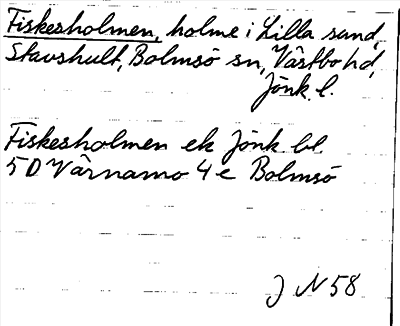 Fiskesholmen, holme i Lilla sund,
Stavshult, Bolmsö sn, Västbo hd,
Jönk. l.
Fiskesholmen ek Jönk bl.
5D Värnamo 4e Bolmsö
J N 58